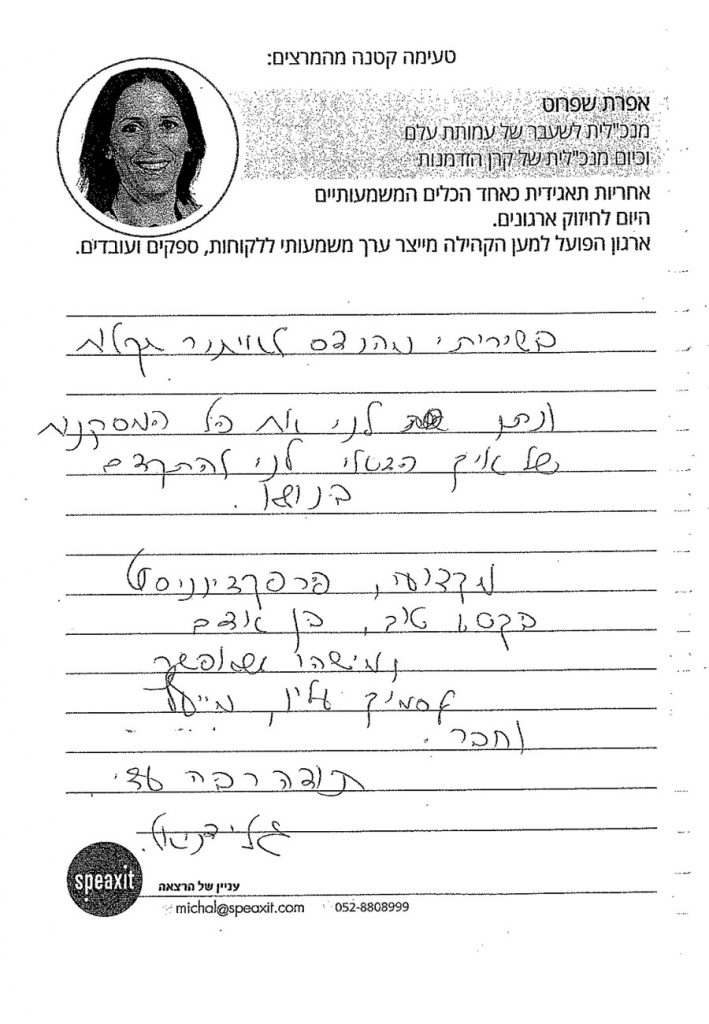 טעימה קטנה מהמרצים:
אפרת שפרוט
מנכ"לית לשעבר של עמותת עלם
וכיום מנכ"לית של קרן הזדמנות
אחריות תאגידית כאחד הכלים המשמעותיים
היום לחיזוק ארגונים.
ארגון הפועל למען הקהילה מייצר ערך משמעותי ללקוחות, ספקים ועובדים.
בשירותי מהנדס לאיתור
ונתן לנו את כל המסקנות
של איך הכי לנו להתקדם
בנושא.
מקצועי, פרפקציוניסט
בקטע טוב, בן אדם
ומישהו שאפשר
לסמוך עליו, מייעץ
וחבר.
תודה רבה עדי
גלי דניאל.
speaxit
עניין של הרצאה
michal@speaxit.com 052-8808999